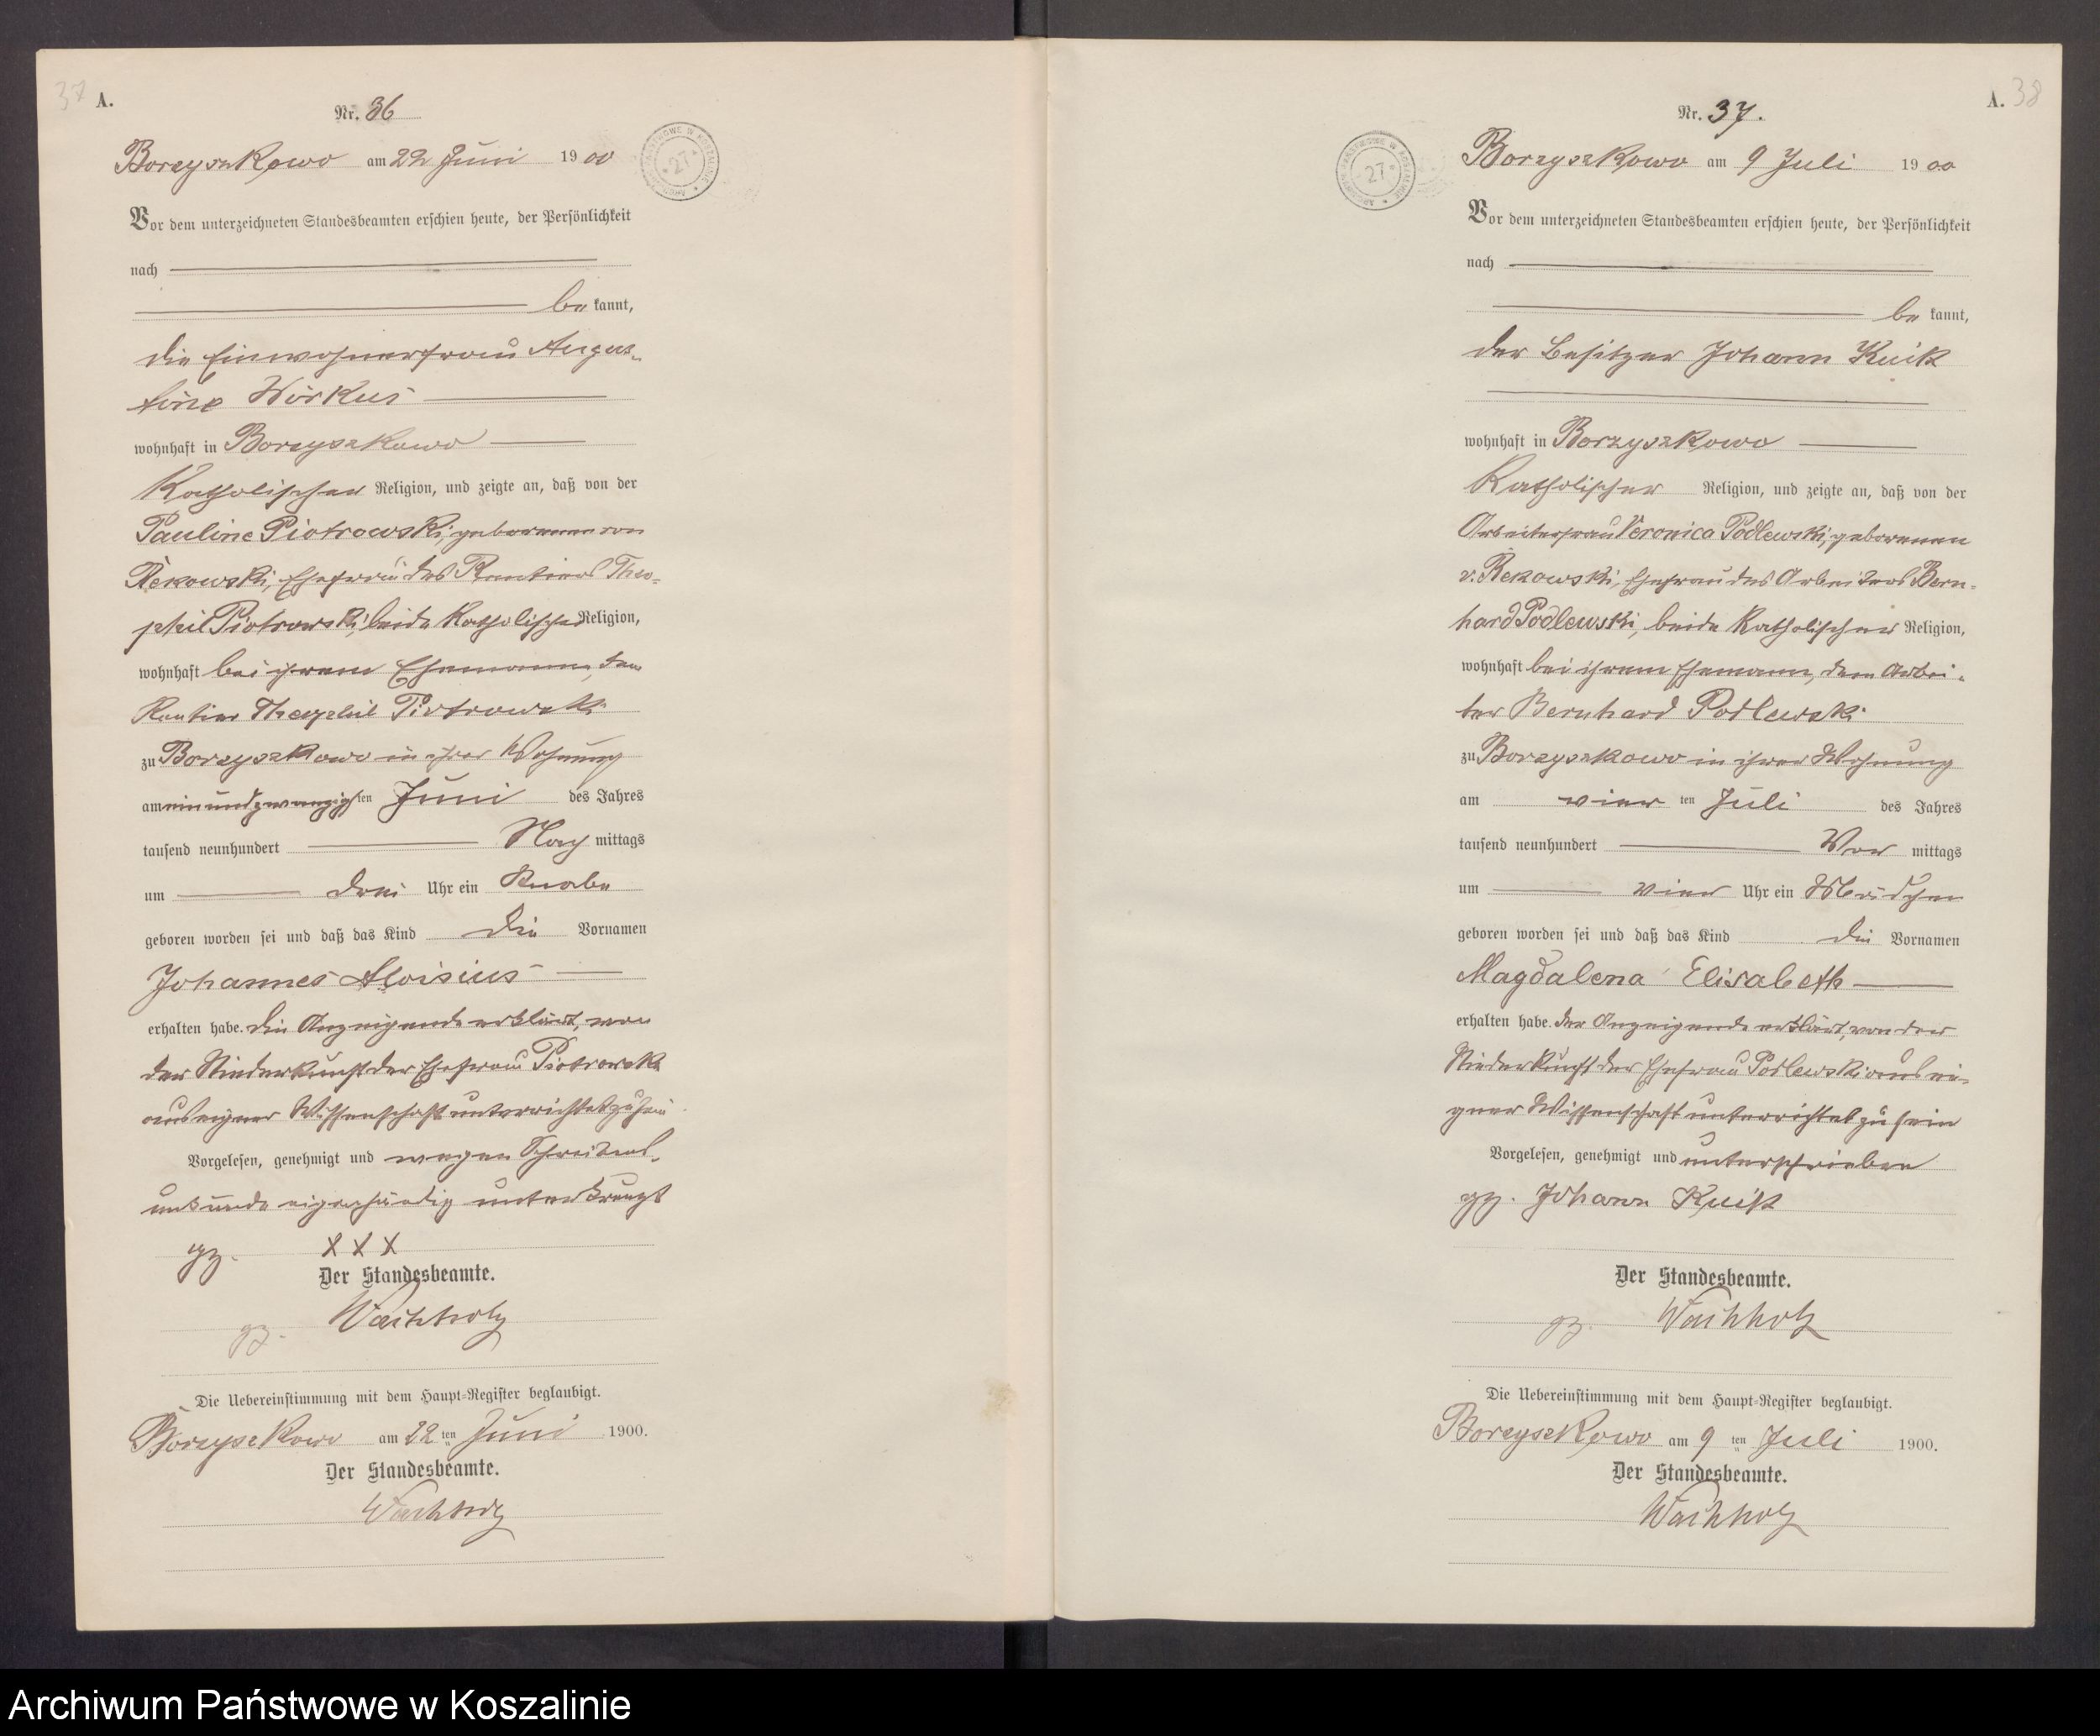 37 A.
Nr. 36
Borzyszkowo am 22 Juni 1900
Vor dem unterzeichneten Standesbeamten erschien heute, der Persönlichkeit
nach
be kannt,
die Einwohnerfrau Augus-
tine Wirkus
wohnhaft in Borzyszkowo
Katholischer Religion, und zeigte an, daß von der
Pauline Piotrowski, geborenen von
Rekowski, Ehefrau des Rentiers Theo-
phil Piotrowski, beide Katholischer Religion,
wohnhaft bei ihrem Ehemanne, dem
Rentier Theophil Piotrowski
zu Borzyszkowo in ihrer Wohnung
am einundzwanzigsten Juni des Jahres
tausend neunhundert Nach mittags
um drei Uhr ein Knabe
geboren worden sei und daß das Kind die Vornamen
Johannes Aloisius
erhalten habe. Die Anzeigende erklärt, von
der Niederkunft der Ehefrau Piotrowski
aus eigner Wissenschaft unterrichtet zu sein
Vorgelesen, genehmigt und wegen Schreibens-
unkunde eigenhändig unterkreuzt
gz. X X X
Der Standesbeamte.
gz. Wachholz
Die Uebereinstimmung mit dem Haupt-Register beglaubigt.
Borzyszkowo am 22 ten Juni 1900.
Der Standesbeamte.
Wachholz
A. 38
Nr. 37.
Borzyszkowo am 9 Juli 1900
Vor dem unterzeichneten Standesbeamten erschien heute, der Persönlichkeit
nach
be kannt,
der Besitzer Johann Kuik
wohnhaft in Borzyszkowo
Katholischer Religion, und zeigte an, daß von der
Arbeiterfrau Veronica Podlewski, geborenen
v. Rekowski, Ehefrau des Arbeiters Bern-
hard Podlewski, beide Katholischer Religion,
wohnhaft bei ihrem Ehemann, dem Arbei-
ter Bernhard Podlewski
zu Borzyszkowo in ihrer Wohnung
am vier ten Juli des Jahres
tausend neunhundert Vor mittags
um vier Uhr ein Mädchen
geboren worden sei und daß das Kind die Vornamen
Magdalena Elisabeth
erhalten habe. Der Anzeigende erklärt, von der
Niederkunft der Ehefrau Podlewski aus ei-
gner Wissenschaft unterrichtet zu sein
Vorgelesen, genehmigt und unterschrieben
gz. Johann Kuik
Der Standesbeamte.
gz. Wachholz
Die Uebereinstimmung mit dem Haupt-Register beglaubigt.
Borzyszkowo am 9 ten Juli 1900.
Der Standesbeamte.
Wachholz
Archiwum Państwowe w Koszalinie